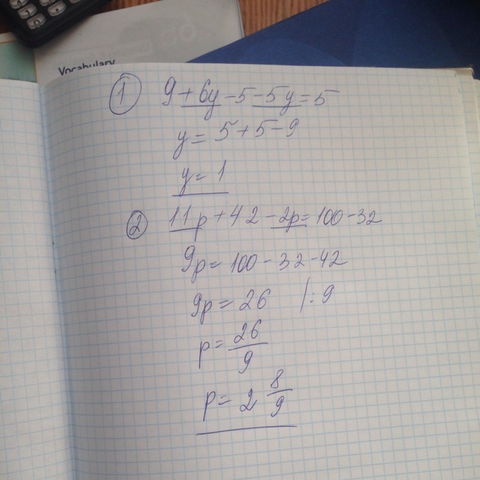 Vocabulary
① 9+6y-5-5y=5
y=5+5-9
y=1
② 11p+42-2p=100-32
9p=100-32-42
9p=26 /:9
p=26/9
p=2 8/9